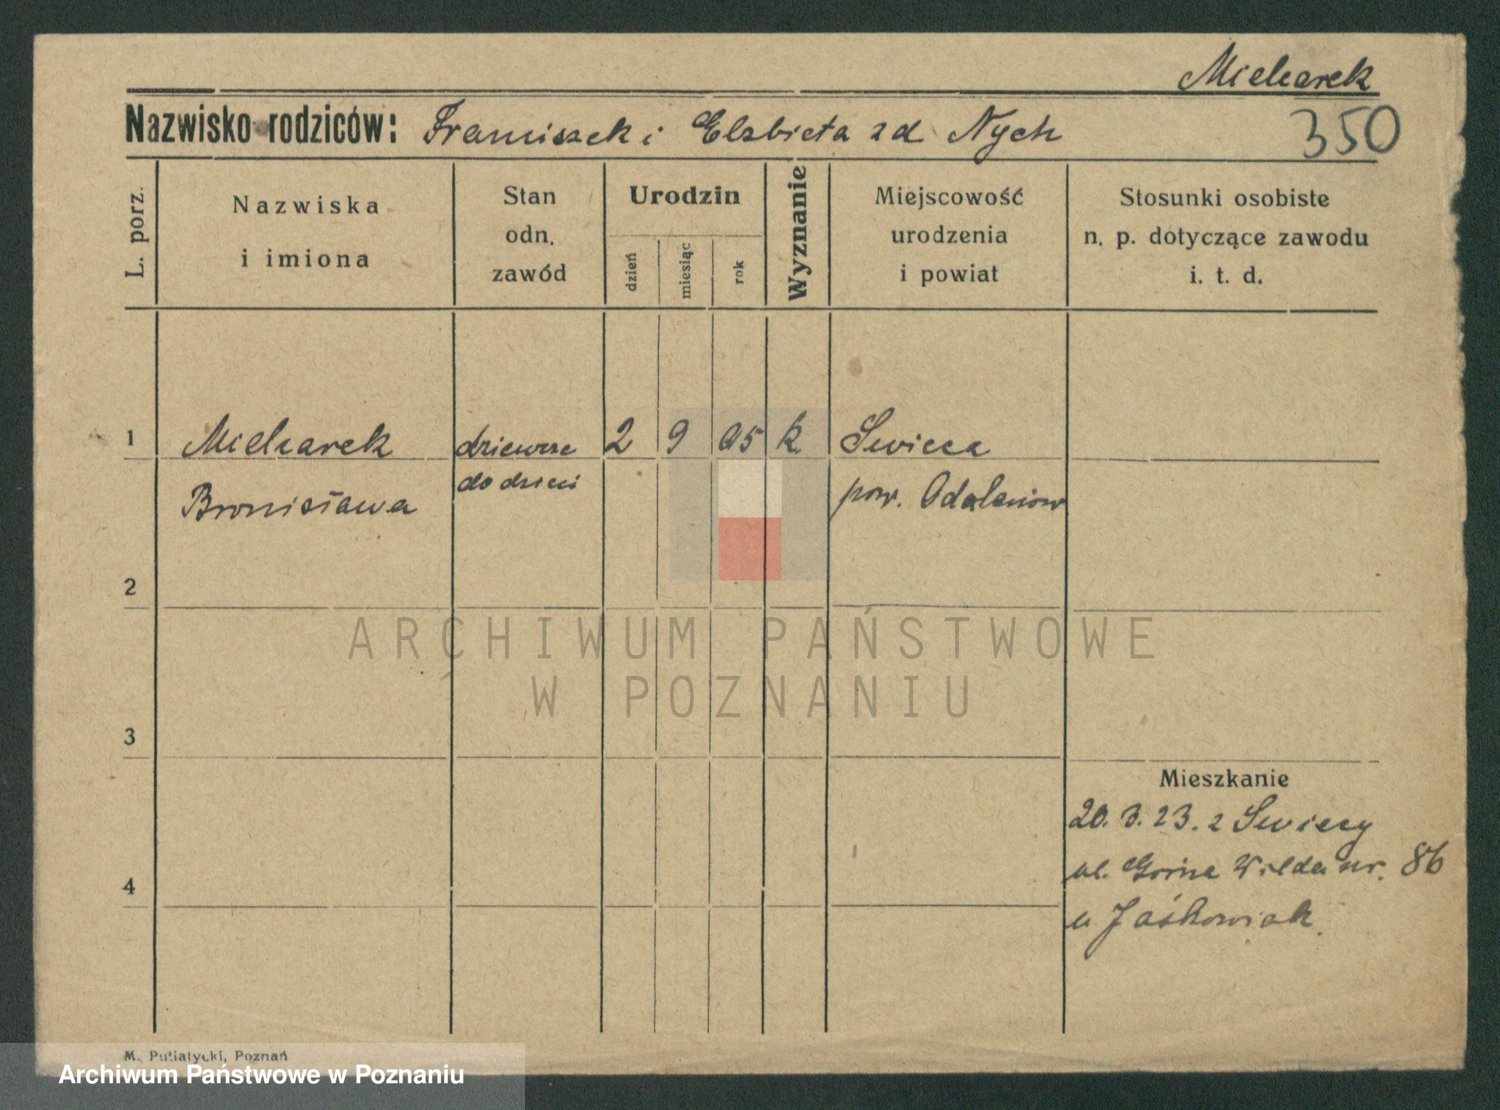 Mielcarek
350
Nazwisko rodziców: Franciszek i Elzbieta zd Nych
L. porz.
Nazwiska
i imiona
Stan
odn.
zawód
Urodzin
dzień
miesiąc
rok
Wyznanie
Miejscowość
urodzenia
i powiat
Stosunki osobiste
n. p. dotyczące zawodu
i. t. d.
1 Mielcarek dziewcze 2 9 05 k. Swieca
Bronisława do dzieci pow. Odolanow
2
ARCHIWUM PAŃSTWOWE
W POZNANIU
3
Mieszkanie
20. 3. 23. z Swiecy
ul. Górna Wilda nr. 86
4
u Jaśkowiak.
M. Putiatycki, Poznań
Archiwum Państwowe w Poznaniu